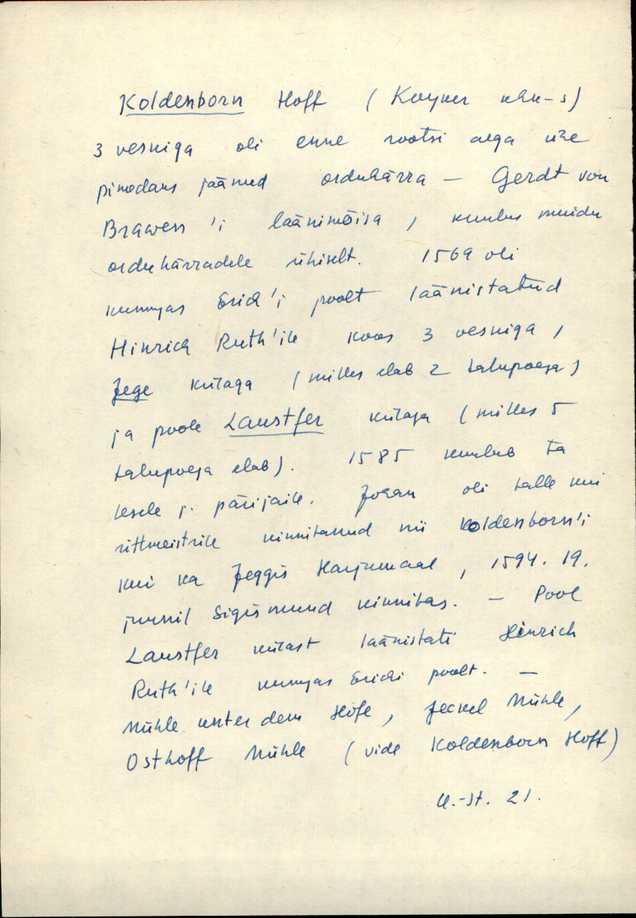 Koldenborn Hoff (Kayner khk-s)
3 veskiga oli enne rootsi aega
jäänud orduhärra — Gerdt von
Brawen'i läänimõisa, kuulus muidu
orduhärradele ühiselt. 1569 oli
kuningas Erich'i poolt läänistatud
Hinrich Ruth'ile koos 3 veskiga,
Jege külaga (milles elab 2 talupoega)
ja poole Laustfer külaga (milles 5
talupoega elab). 1585 kuulub ta
lesele j. pärijaile. Johan oli talle kui
rittmeistrile kinnitanud nii Koldenborn'i
kui ka Jeggis Harjumaal, 1594. 19.
juunil Sigismund kinnitas. — Pool
Laustfer külast läänistati Hinrich
Ruth'ile kuningas Erichi poolt. —
Mühle unter dem Hofe, Jeckel Mühle,
Osthoff Mühle (vide Koldenborn Hoff)
U.-St. 21.